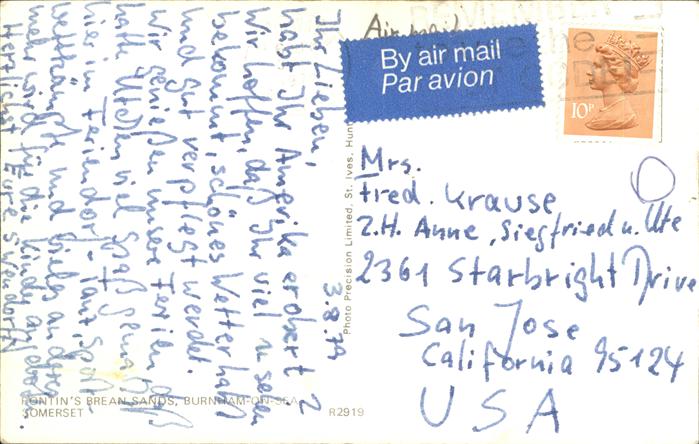 3.8.79
Ihr Lieben,
habt Ihr Amerika erobert?
Wir hoffen, daß Ihr viel zu sehen
bekommt, schönes Wetter habt
und gut verpflegt werdet.
Wir genießen unsere Ferien.
hatte viel Spaß
hier im Feriendorf - Tanz, Sport-
wettkämpfe und vieles andere
mehr wird für die Kinder angeboten.
Herzlichst Eure
PONTIN'S BREAN SANDS, BURNHAM-ON-SEA,
SOMERSET
R2919
Photo Precision Limited, St. Ives, Hunt
Air mail
By air mail
Par avion
10P
Mrs.
Fred. Krause
z.H. Anne, Siegfried u. Ute
2361 Starbright Drive
San Jose
California 95124
USA